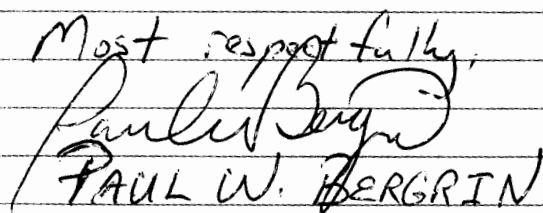 Most respectfully,
Paul W Bergrin
PAUL W. BERGRIN